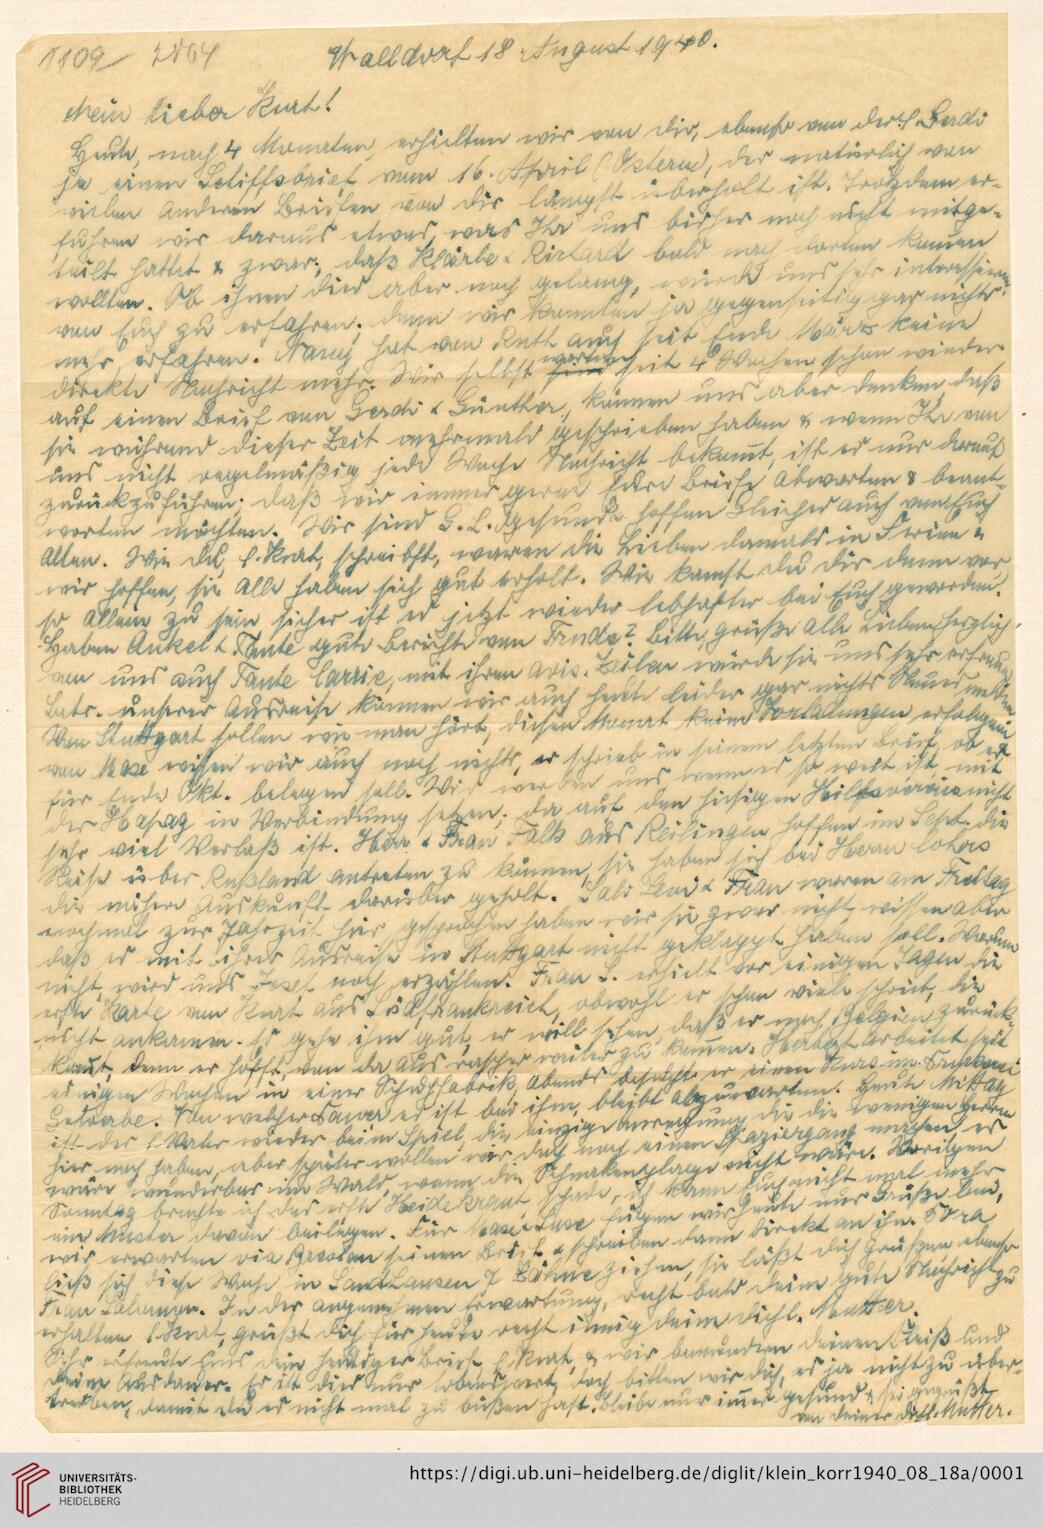 1109 2804
Walldorf 18. August 1940.
Mein lieber Kurt!
Heute, nach 4 Monaten, erhielten wir von dir, ebenso von der l. Gerdi
je einen Schiffsbrief vom 16. April (Ostern), der natürlich von
vielen anderen Briefen von dir längst überholt ist. Trotzdem er-
fuhren wir daraus etwas, was Ihr uns bisher noch nicht mitge-
teilt hattet & zwar, daß Klärle & Richard bald nach dorten kommen
wollten. Ob ihnen dies aber noch gelang, würde uns sehr interessieren
von Euch zu erfahren, denn wir konnten ja gegenseitig gar nichts
mehr erfahren. Nanny hat von Ruth auch seit Ende März keine
direkte Nachricht mehr. Wir selbst warten seit 4 Wochen schon wieder
auf einen Brief von Gerdi & Günther, können uns aber denken, daß
sie während dieser Zeit mehrmals geschrieben haben & wenn Ihr von
uns nicht regelmäßig jede Woche Nachricht bekommt, ist es nur darauf
zurückzuführen, daß wir immer gerne Eure Briefe abwarten & beant-
worten möchten. Wir sind G. L. gesund & hoffen Gleiches auch von Euch
Allen. Wie du, l. Kurt, schreibst, waren die Lieben damals in Ferien &
wir hoffen, sie Alle haben sich gut erholt. Wie kamst du dir denn vor,
so allein zu sein sicher ist es jetzt wieder lebhafter bei Euch geworden.
Haben Onkel & Tante gute Berichte von Trude? Bitte, grüße alle Lieben herzlich
von uns auch Tante Carrie, mit ihren avis. Zeilen würde sie uns sehr erfreuen
Betr. unserer Ausreise können wir auch heute leider gar nichts Neues melden
Von Stuttgart sollen wie man hört, diesen Monat keine Vorladungen erfolgen &
von Maxe wissen wir auch noch nichts, er schrieb in seinem letzten Brief, ob er
für Ende Okt. belegen soll. Wir werden uns wenn es so weit ist, mit
der Hapag in Verbindung setzen, da auf den hiesigen Hilfsverein nicht
sehr viel Verlaß ist. Herr & Frau Falk aus Reilingen hoffen im Sept. die
Reise über Rußland antreten zu können, sie haben sich bei Herrn
die nähere Auskunft darüber geholt. Sali Levi & Frau waren am Freitag
nochmal zur Jahrzeit hier gesprochen haben wir sie zwar nicht, wissen aber
daß es mit ihrer Ausreise in Stuttgart nicht geklappt haben soll. Warum
nicht, wird uns Josef noch erzählen. Frau L. erhielt vor einigen Tagen die
erste Karte von Kurt aus Südfrankreich, obwohl er schon viele schrieb, die
nicht ankamen. Es gehe ihm gut, er will sehen, daß er nach Belgien zurück-
kommt, denn er hofft, von da aus rascher weiter zu kommen. Herbert arbeitet seit
einigen Wochen in einer Schuhfabrik, abends besucht er einen Kurs im
Gewerbe. Von welcher Dauer es ist bei ihm, bleibt abzuwarten. Heute Mittag
ist der l. Vater wieder beim Spiel, die einzige Anregung die die wenigen Herren
hier noch haben, aber später wollen wir doch noch einen Spaziergang machen, es
wäre wunderbar im Wald, wenn die Schnakenplage nicht wäre. Vorigen
Sonntag brachte ich das erste Heidekraut, schade, ich kann Euch nicht mal mehr
ein Muster davon beilegen. Für Maxe & Luse fügen wir heute nur Grüße bei,
wir erwarten via Breslau seinen Brief & schreiben dann direkt an ihn. Flora
ließ sich diese Woche in Sandhausen 7 Zähne ziehen, sie läßt dich grüßen ebenso
Frau Salomon. In der angenehmen Erwartung, recht bald deine gute Nachricht zu
erhalten l. Kurt, grüßt dich für heute recht innig deine dichl. Mutter.
Sehr erfreute uns dein heutiger Brief, l. Kurt, & wir bewundern deinen Fleiß und
deine Ausdauer. Es ist dies nur lobenswert, doch bitten wir dich, es ja nicht zu über-
treiben, damit du es nicht mal zu büßen hast. Bleibe nur immer gesund & sei gegrüßt
von deiner dichl. Mutter.
UNIVERSITÄTS-
BIBLIOTHEK
HEIDELBERG
https://digi.ub.uni-heidelberg.de/diglit/klein_korr1940_08_18a/0001